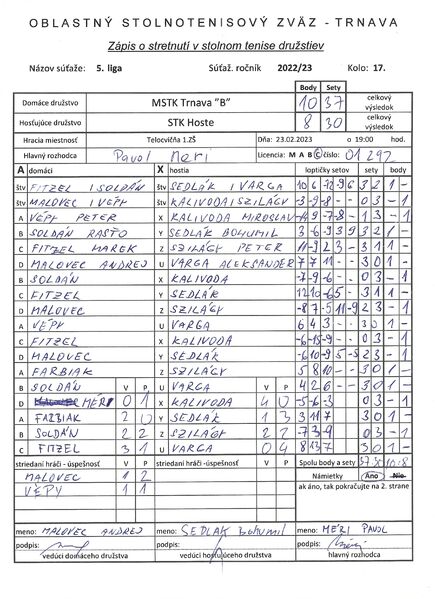 OBLASTNÝ STOLNOTENISOVÝ ZVÄZ - TRNAVA
Zápis o stretnutí v stolnom tenise družstiev
Názov súťaže: 5. liga Súťaž. ročník 2022/23 Kolo: 17.
Body Sety
Domáce družstvo MSTK Trnava "B" 10 37 celkový výsledok
Hosťujúce družstvo STK Hoste 8 30 celkový výsledok
Hracia miestnosť Telocvičňa 1.ZŠ Dňa: 23.02.2023 o 19:00 hod.
Hlavný rozhodca Pavol Meri Licencia: M A B C číslo: 01292
A domáci X hostia loptičky setov sety body
štv FITZEL I SOLDÁN štv SEDLÁK I VARGA 3 2 1 -
štv MALOVEC I VÉPY štv KALIVODA I SZILÁGY -3 -9 -8 - - 0 3 - 1
A VÉPY PETER X KALIVODA MIROSLAV 1 3 - 1
B SOLDÁN RASŤO Y SEDLÁK BOHUMIL 3 2 1 -
C FITZEL MAREK Z SZILÁGY PETER 3 - 1 1 -
D MALOVEC ANDREJ U VARGA ALEKSANDER 7 7 11 - - 3 0 1 -
B SOLDÁN X KALIVODA -7 -9 -6 - - 0 3 - 1
C FITZEL Y SEDLÁK 12 10 -6 5 - 3 1 1 -
D MALOVEC Z SZILÁGY -8 7 -5 11 -9 2 3 - 1
A VÉPY U VARGA 6 4 3 - - 3 0 1 -
C FITZEL X KALIVODA -6 -15 -9 - - 0 3 - 1
D MALOVEC Y SEDLÁK 2 3 - 1
A FARBIAK Z SZILÁGY 5 8 10 - - 3 0 1 -
B SOLDÁN V P U VARGA V P 4 2 6 - - 3 0 1 -
D MERI 0 1 X KALIVODA 4 0 -5 -6 -3 0 3 - 1
A FARBIAK 2 0 Y SEDLÁK 1 3 3 11 7 3 0 1 -
B SOLDÁN 2 2 Z SZILÁGY 2 2 -7 -3 -9 0 3 - 1
C FITZEL 3 1 U VARGA 0 4 8 13 7 3 0 1 -
striedaní hráči - úspešnosť V P striedaní hráči - úspešnosť V P Spolu body a sety 37:30 10:8
MALOVEC 1 2 Námietky Áno Nie
VÉPY 1 1 ak áno, tak pokračujte na 2. strane
meno: MALOVEC ANDREJ meno: SEDLAK Bohumil meno: MERI PAVOL
podpis: podpis: podpis:
vedúci domáceho družstva vedúci hosťujúceho družstva hlavný rozhodca